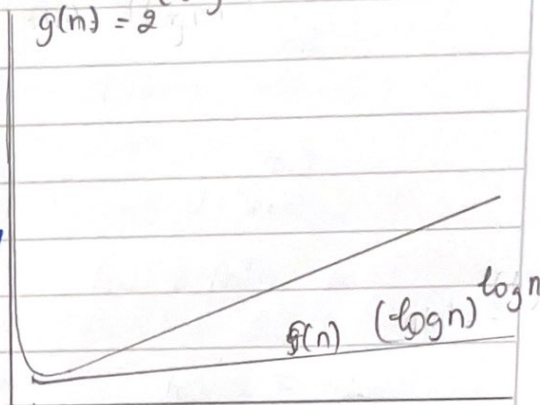 g(n) = 2
f(n) (log n)^log n